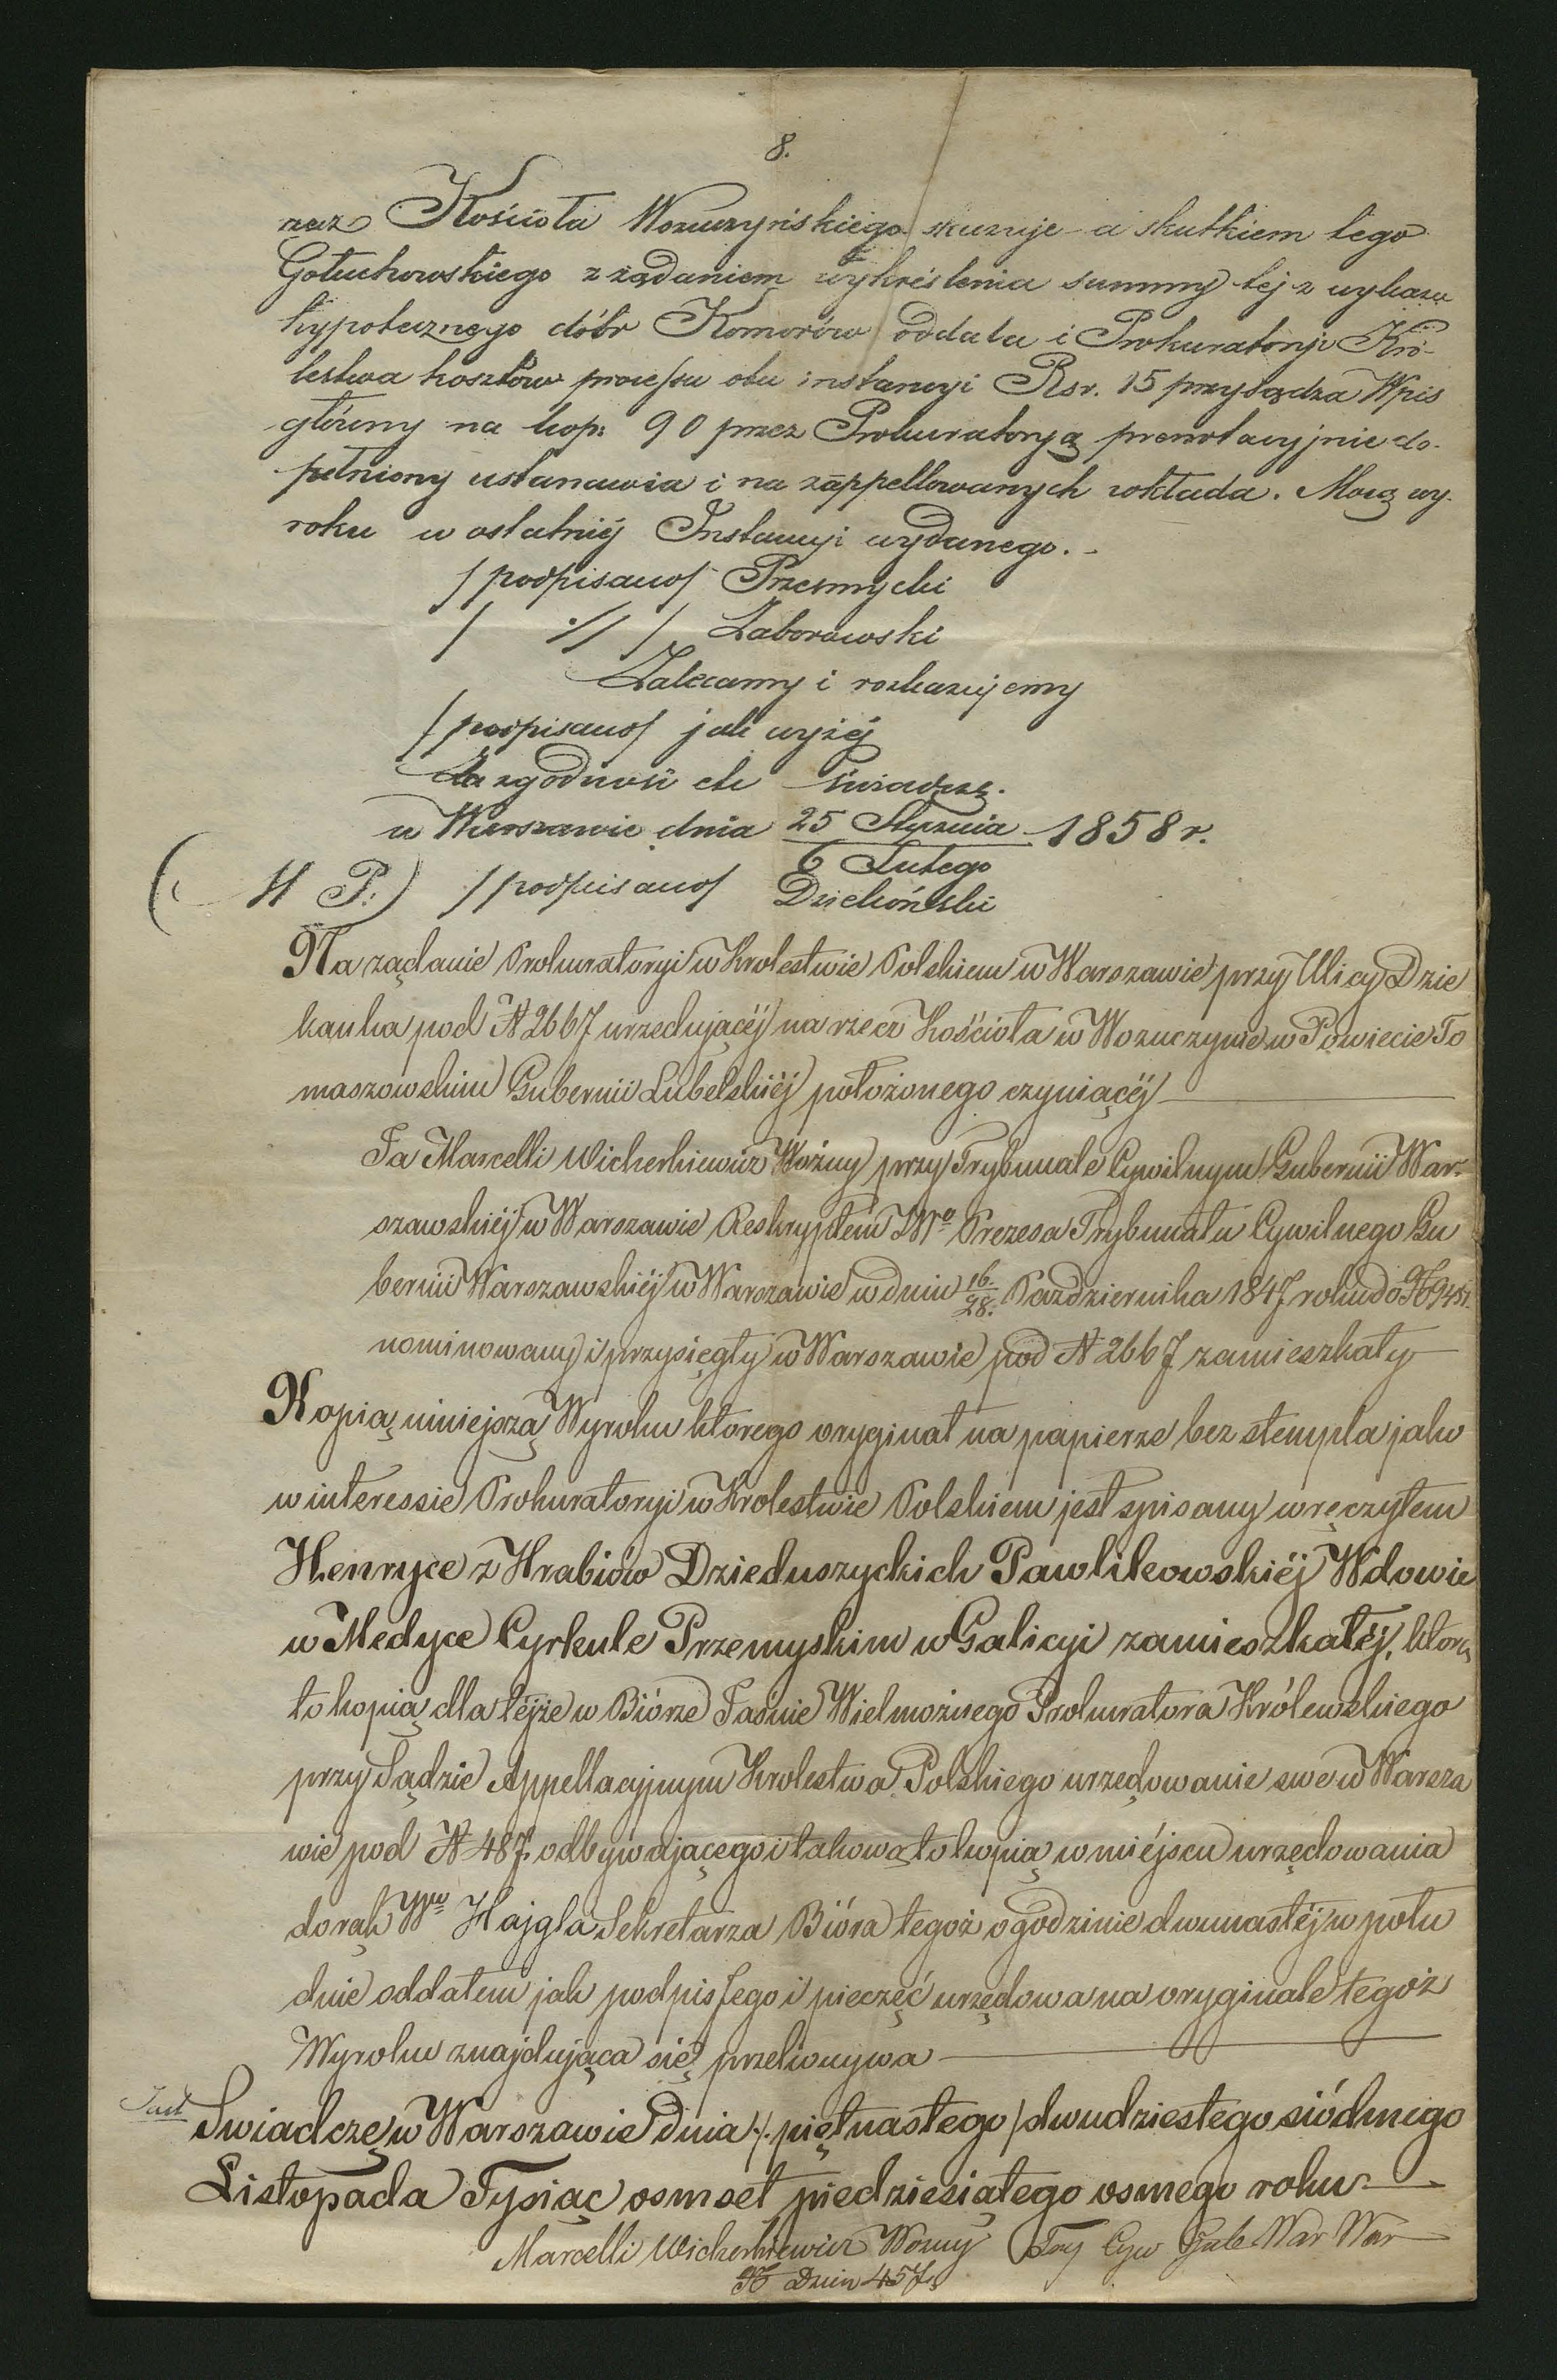 8.
rzecz Kościoła Wożuczyńskiego skazuje a skutkiem tego
Gołuchowskiego z żądaniem wykreślenia summy tej z wykazu
hypotecznego dóbr Komorów oddala i Prokuratoryi Kró-
lestwa kosztów processu obu instancyi Rsr. 15 przysądza Wpis
główny na kop: 90 przez Prokuratoryą prenotacyjnie do-
pełniony ustanawia i na zappellowanych wkłada. Mocą wy-
roku w ostatniéj Instancyi wydanego. -
/podpisano/ Przesmycki
/ :// / Zaborowski
Zalecamy i rozkazujemy
/podpisano/ jak wyżéj
Za zgodność etc świadczę.
w Warszawie dnia 25 Stycznia 1858 r.
6 Lutego
(M P.) /podpisano/ Dziekoński
Na żądanie Prokuratoryi w Krolestwie Polskiem w Warszawie przy Ulicy Dzie
kanka pod N 2667 urzedującéj na rzecz Kościoła w Wożuczynie w Powiecie To
maszowskim Gubernii Lubelskiéj położonego czyniącéj
Ja Marcelli Wicherkiewicz Woźny przy Trybunale Cywilnym Gubernii War-
szawskiéj w Warszawie Reskryptem JWo Prezesa Trybunału Cywilnego Gu
bernii Warszawskiéj w Warszawie w dniu 16/28. Października 1847 roku do N 9451
nominowany i przysięgły w Warszawie pod N 2667 zamieszkały
Kopią niniejszą Wyroku ktorego oryginał na papierze bez stempla jako
w interessie Prokuratoryi w Krolestwie Polskiem jest spisany wręczyłem
Henryce z Hrabiów Dzieduszyckich Pawlikowskiéj Wdowie
w Medyce Cyrkule Przemyskim w Galicyi zamieszkałéj, ktorą
to kopią dla téjże w Biórze Jaśnie Wielmożnego Prokuratora Królewskiego
przy Sądzie Appellacyjnym Krolestwa Polskiego urzędowanie swe w Warsza
wie pod N 487 odbywającego i takową to kopią w miéjscu urzędowania
do rąk Wgo Hajgla Sekretarza Bióra tegoż o godzinie dwunastéj w połu
dnie oddałem jak podpis Jego i pieczęć urzędowa na oryginale tegoż
Wyroku znajdująca się przekonywa
Swiadczę w Warszawie dnia /. piętnastego / dwudziestego siódmego
Listopada Tysiąc osmset piedziesiątego osmego roku
Marcelli Wicherkiewicz Woźny Try Cyw Gub War War
N Dzien 457